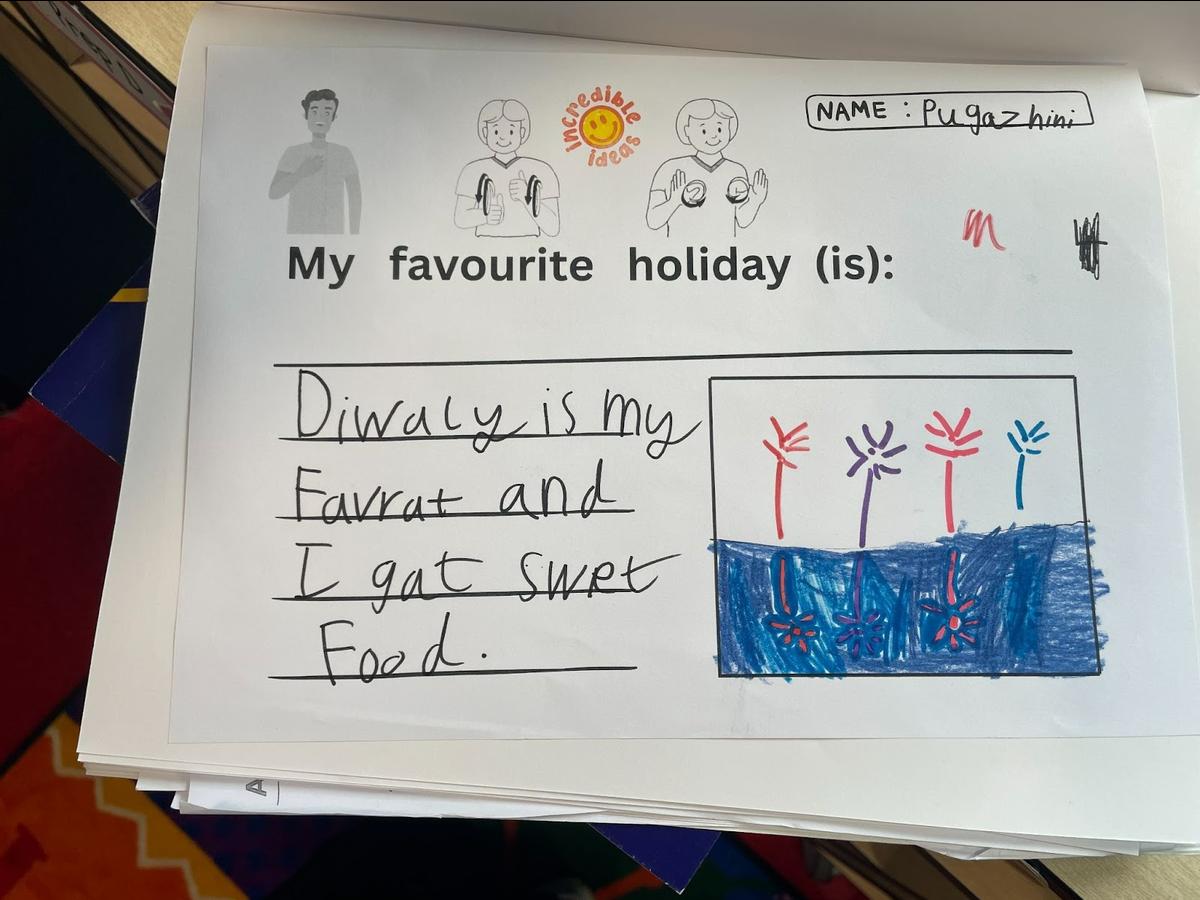 incredible ideas
NAME : Pugazhini
My favourite holiday (is):
Diwaly is my
Favrat and
I gat swet
Food.